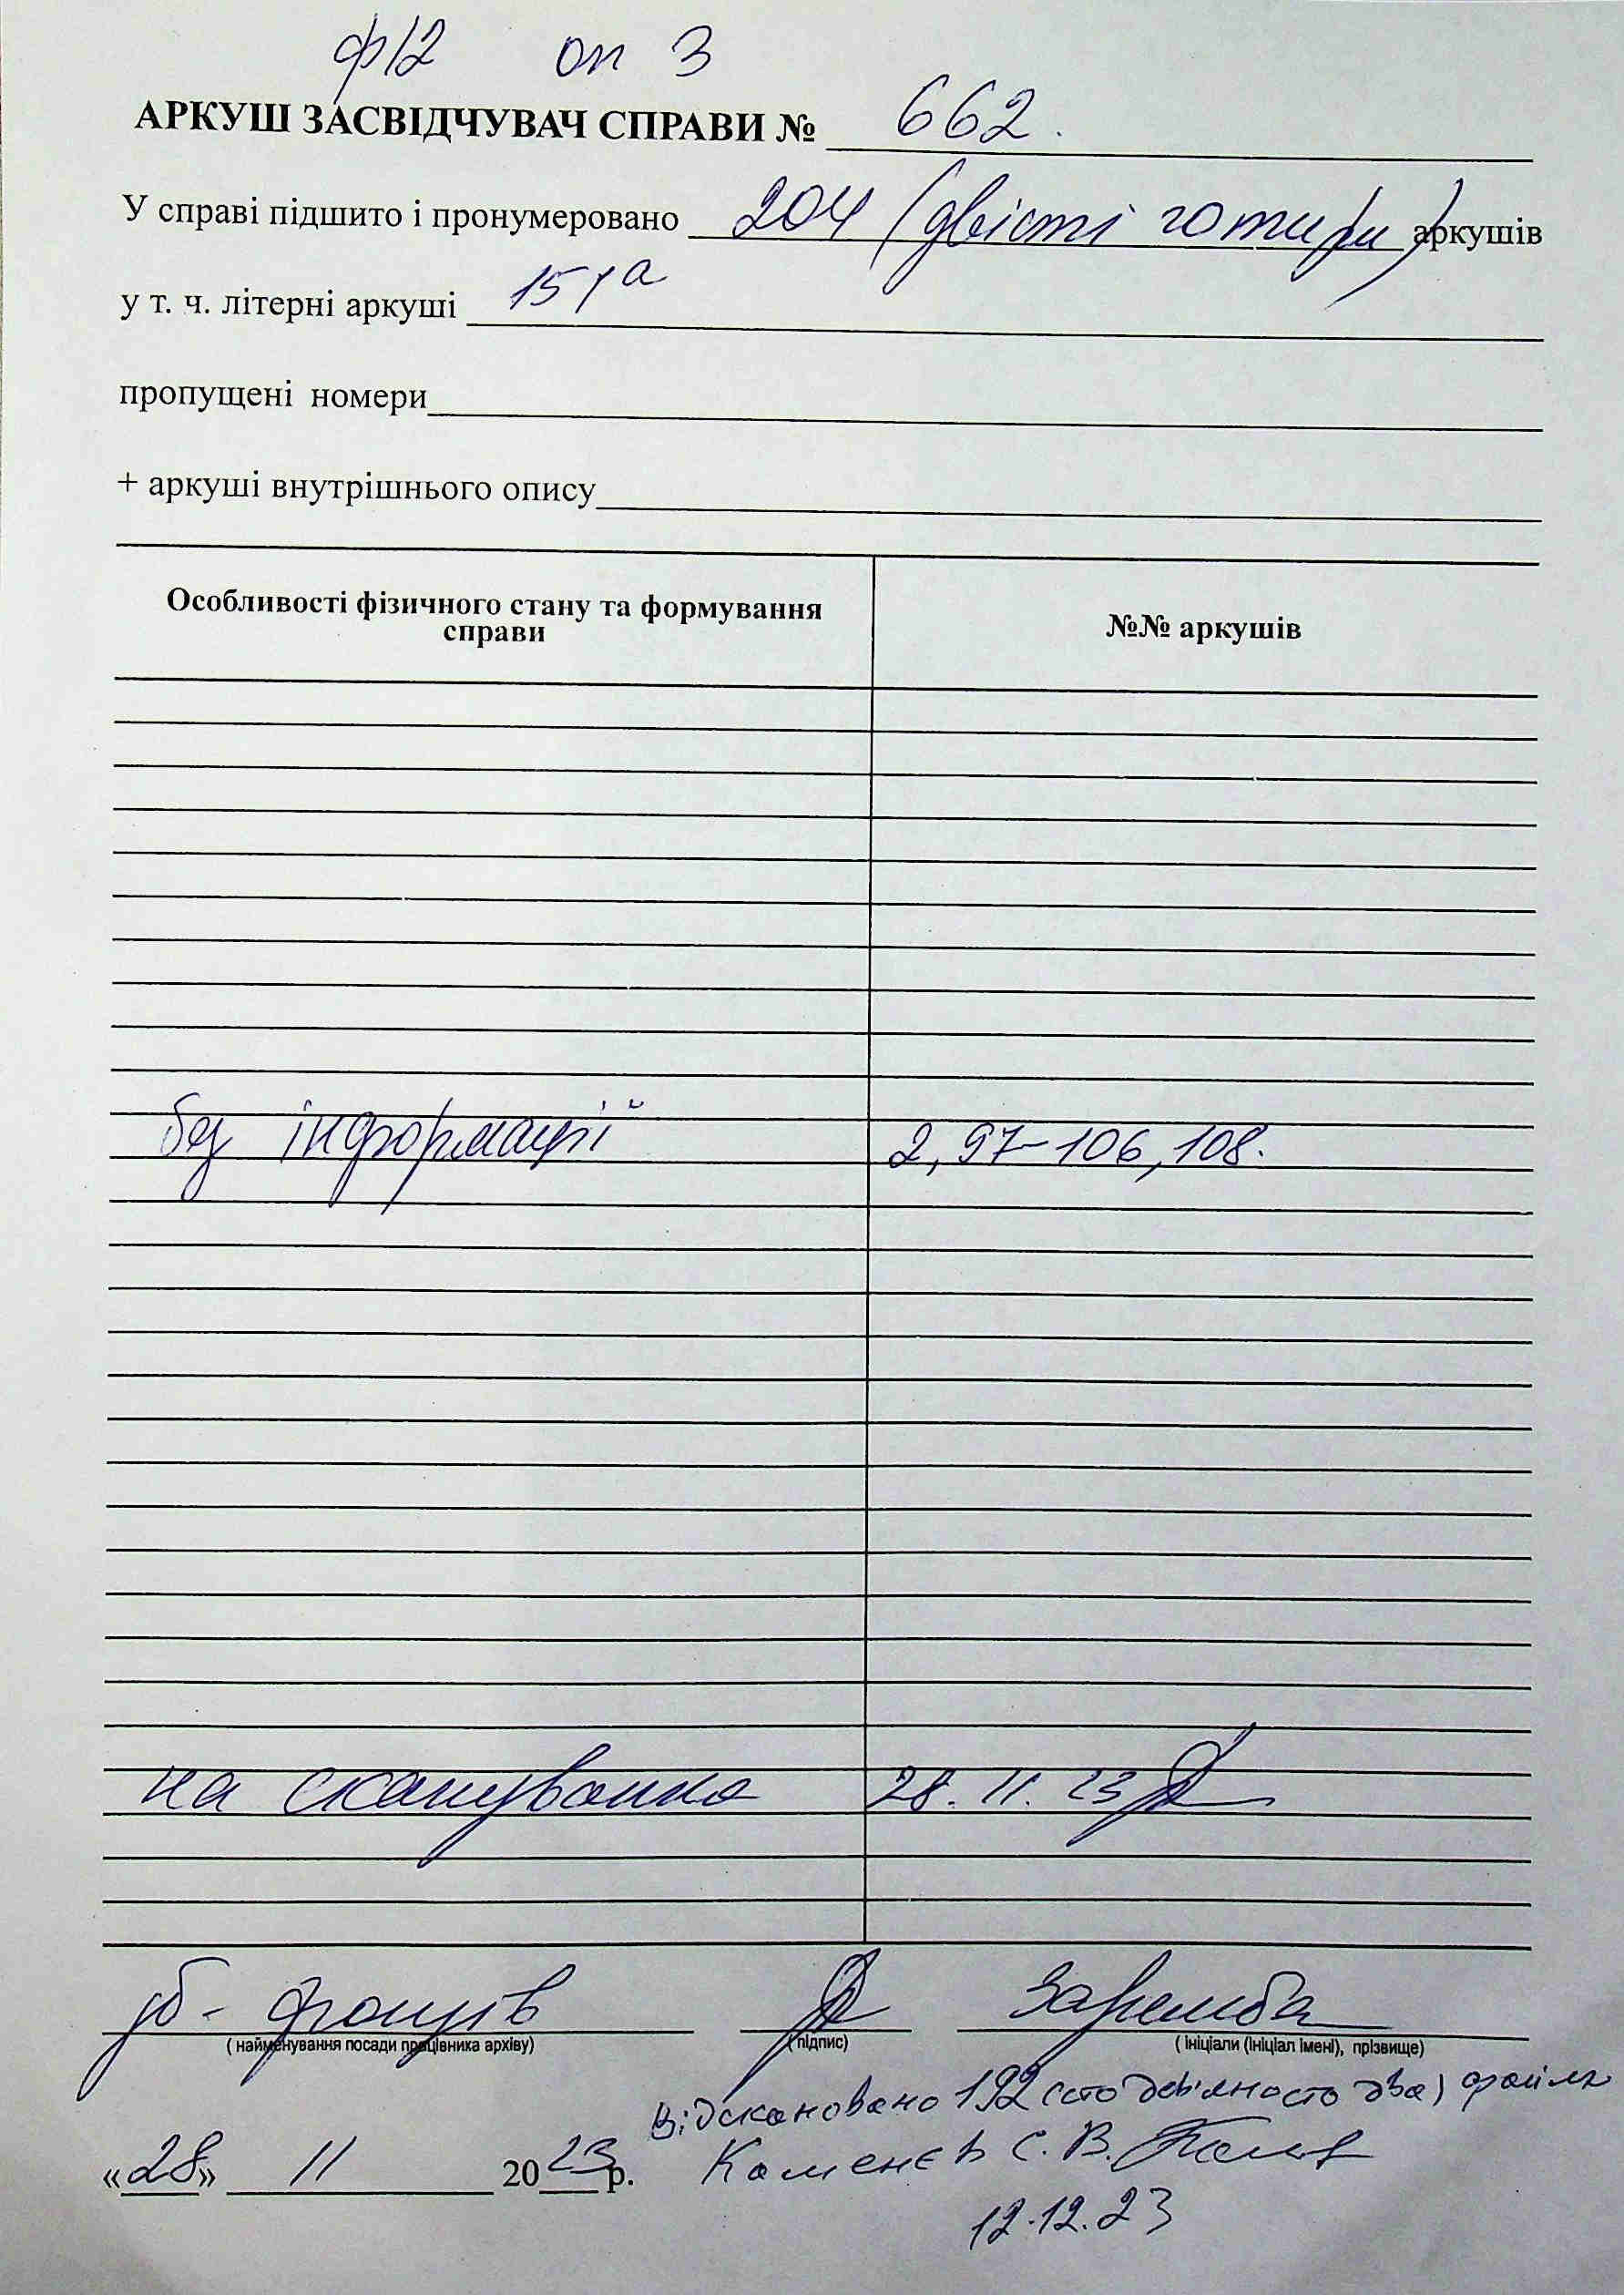 ф12 оп 3
АРКУШ ЗАСВІДЧУВАЧ СПРАВИ № 662.
У справі підшито і пронумеровано 204 (двісті чотири) аркушів
у т. ч. літерні аркуші 151а
пропущені номери
+ аркуші внутрішнього опису
Особливості фізичного стану та формування
справи
№№ аркушів
без інформації 2, 97-106, 108.
на сканування 28.11.23
зб. фондів Заремба
( найменування посади працівника архіву) ( підпис) ( ініціали (ініціал імені), прізвище)
Відскановано 192 (сто дев'яносто два) файли
«28» 11 2023р. Каменєв С. В.
12.12.23